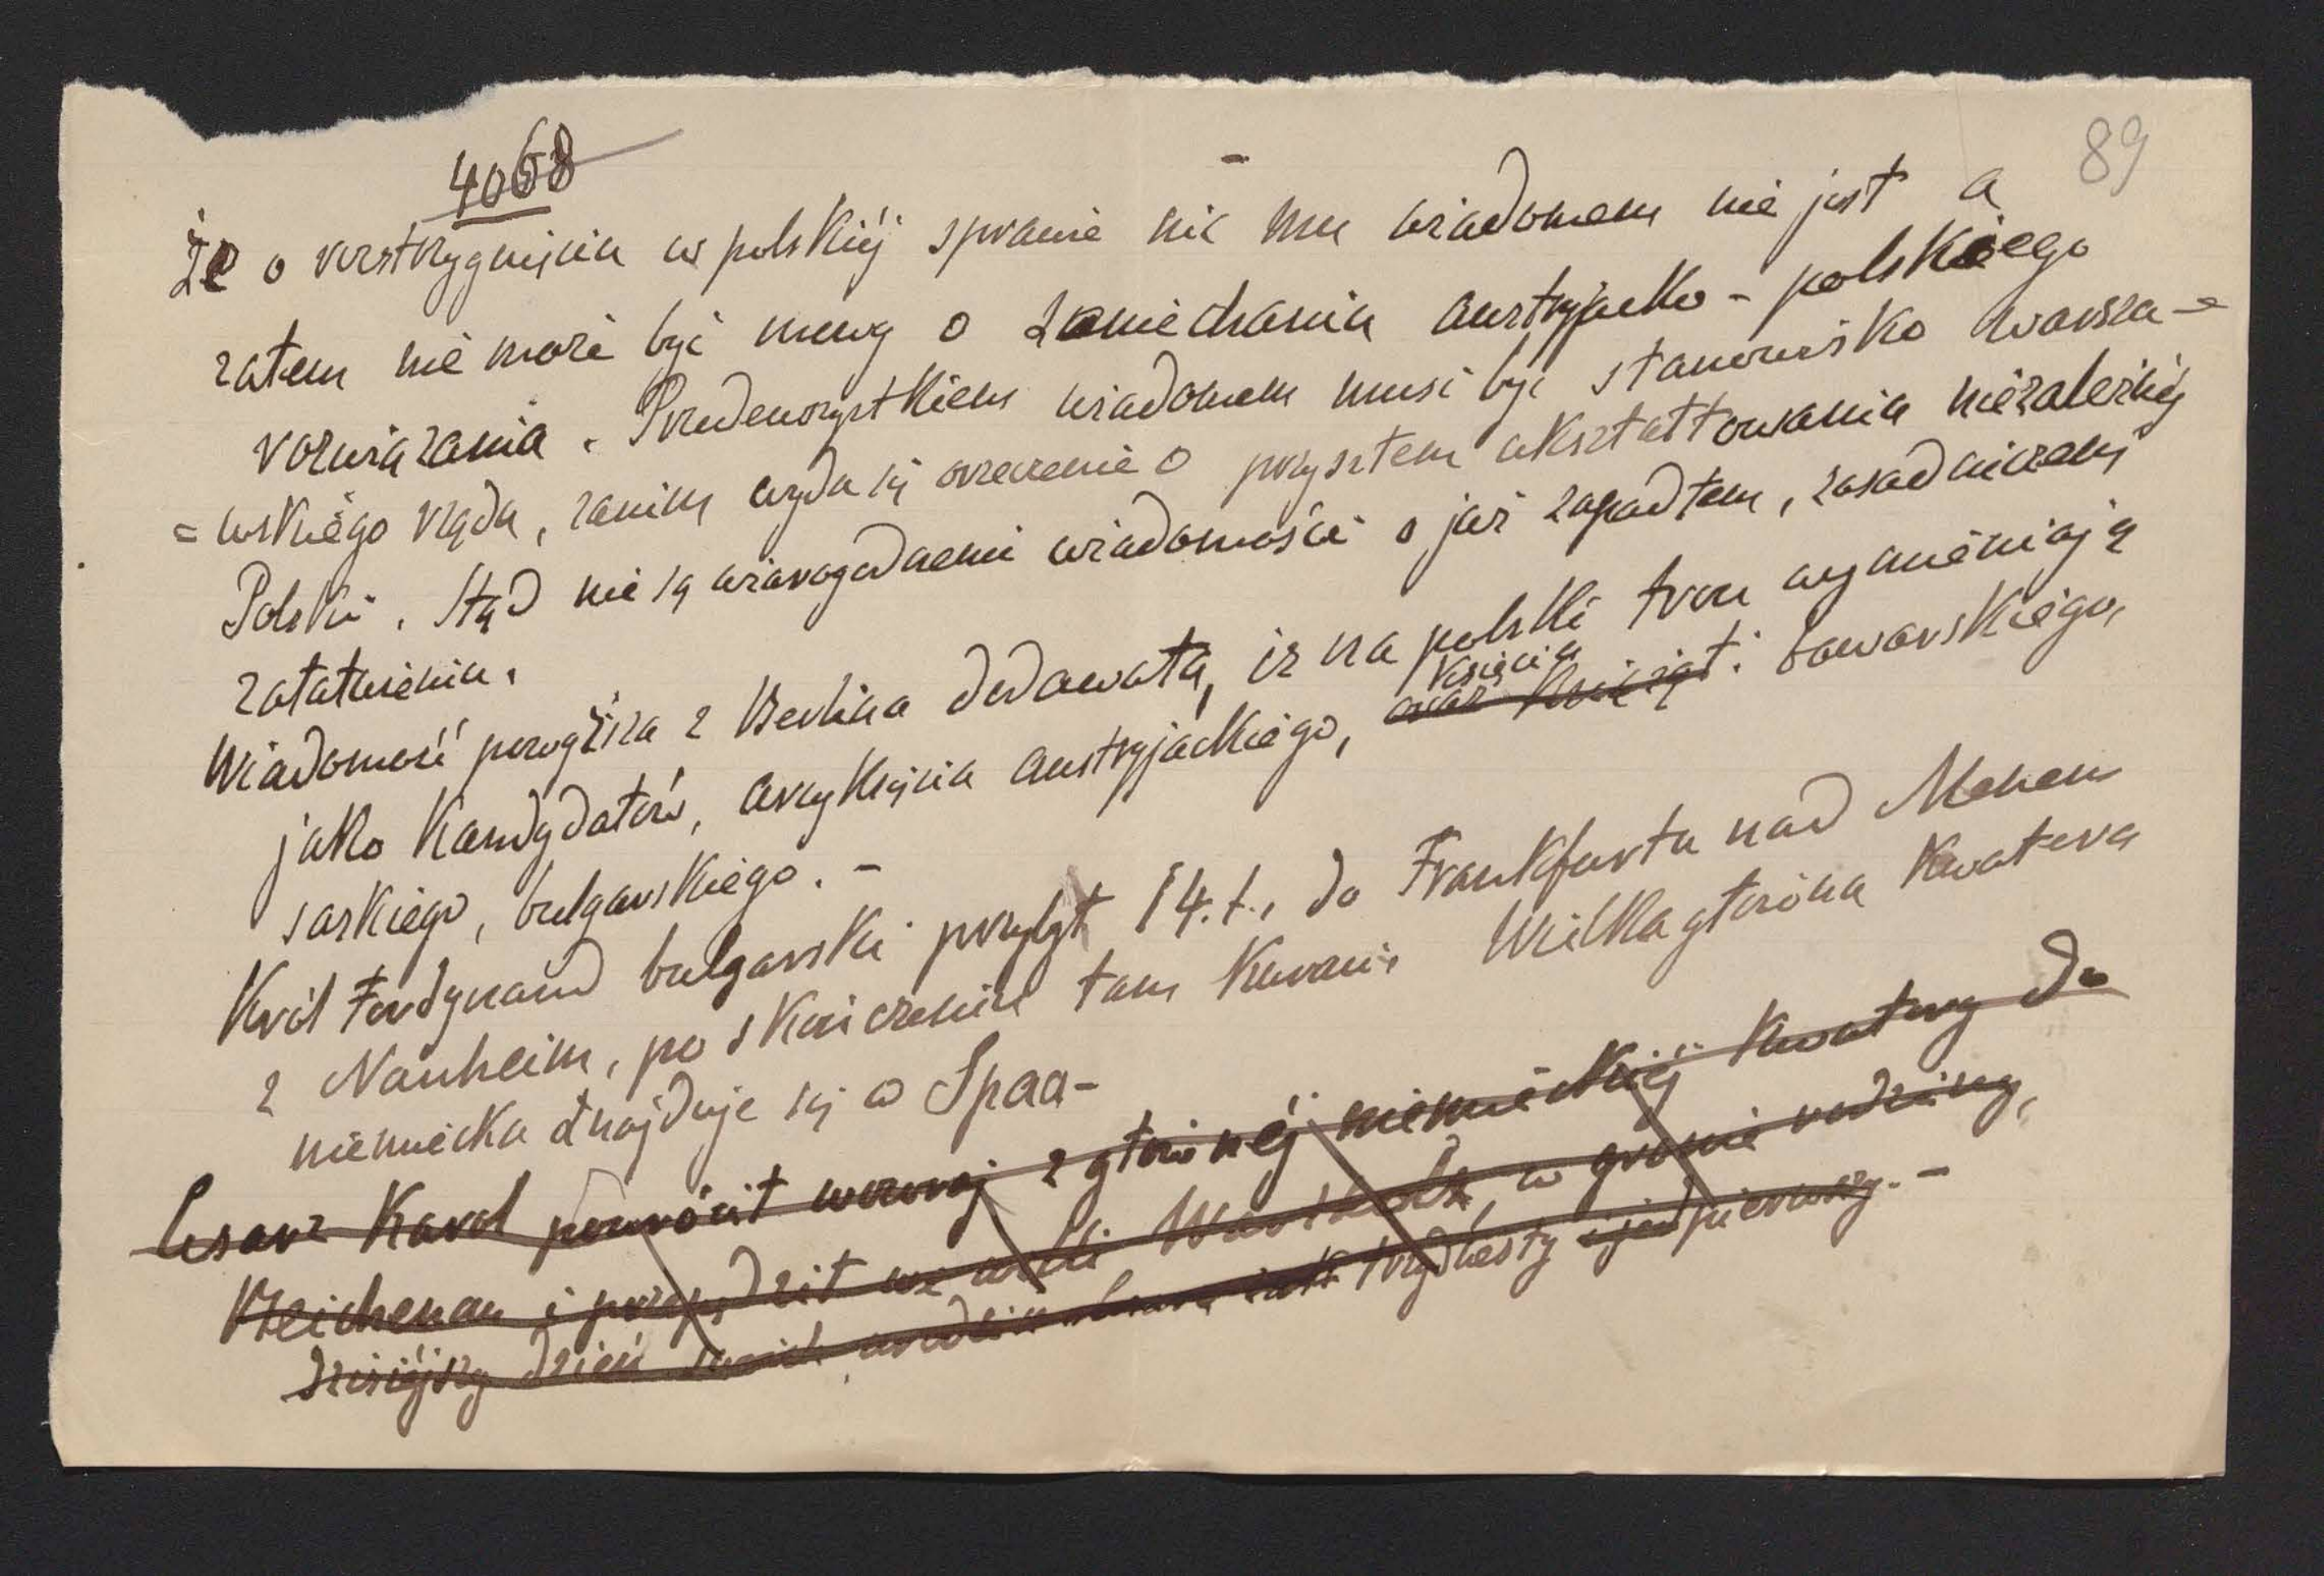 4068
89
że o rozstrzygnięciu w polskiéj sprawie nic mu wiadomem nie jest a
zatem nie może być mowy o zaniechaniu austryjacko - polskiego
rozwiązania. Przedewszystkiem wiadomem musi być stanowisko warsza-
=wskiego rządu, zanim wyda się orzeczenie o przyszłem ukształtowaniu niezależnéj
Polski. Stąd nie są wiarogodnemi wiadomości o już zapadłem, zasadniczem
załatwieniu.
Wiadomość powyższa z Berlina dodawała, iż na polski tron wymieniają
jako kandydatów, arcyksięcia austryjackiego, oraz książąt: księcia bawarskiego,
saskiego, bulgarskiego. -
Król Ferdynand bulgarski przybył 14. t., do Frankfurtu nad Menem
z Nauheim, po skończeniu tam kuracji. Wielka główna kwatera
niemiecka znajduje się w Spaa-
Cesarz Karol powrócił wczoraj z głównéj niemieckiéj kwatery do
Reichenau i przepędził we willi Wartholz, w gronie rodziny,
dzisiéjszy dzień swoich urodzin trzydziesty pierwszy. -